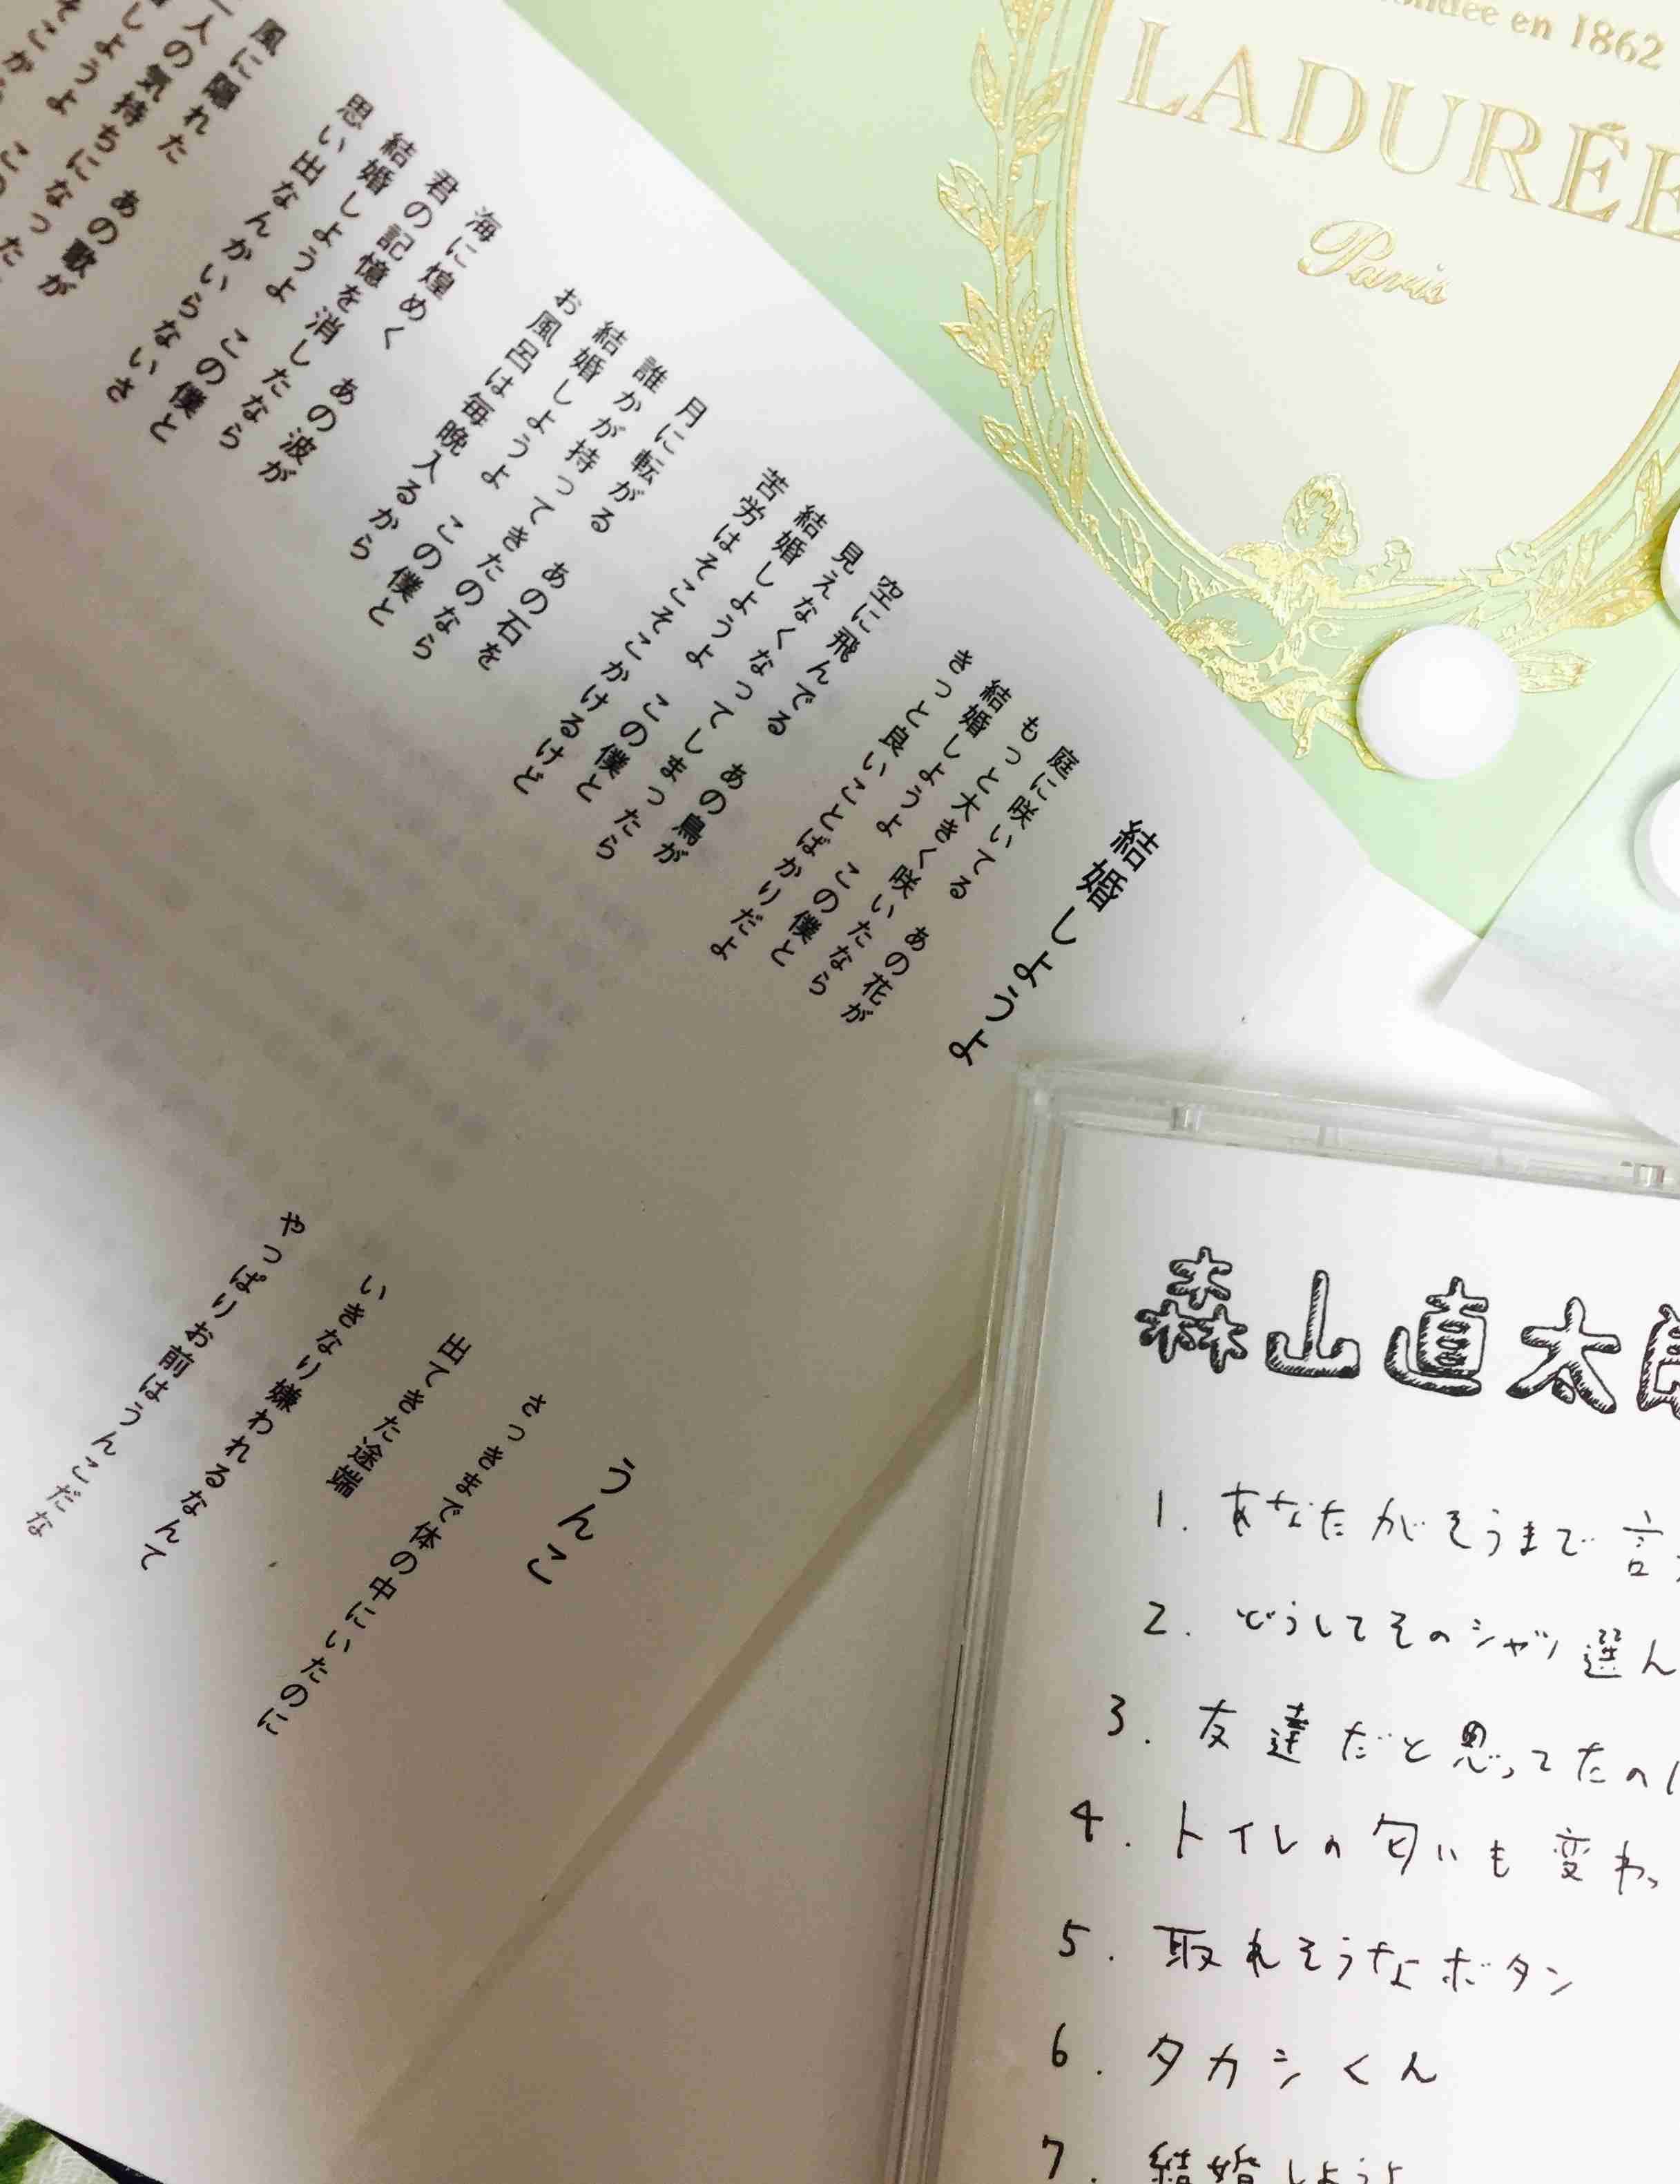 fondée en 1862
LADURÉE
Paris
結婚しようよ
庭に咲いてる あの花が
もっと大きく咲いたなら
結婚しようよ この僕と
きっと良いことばかりだよ
空に飛んでる あの鳥が
見えなくなってしまったら
結婚しようよ この僕と
苦労はそこそこかけるけど
月に転がる あの石を
誰かが持ってきたのなら
結婚しようよ この僕と
お風呂は毎晩入るから
海に煌めく あの波が
君の記憶を消したなら
結婚しようよ この僕と
思い出なんかいらないさ
風に隠れた あの歌が
人の気持ちになった
しようよ この
うんこ
さっきまで体の中にいたのに
出てきた途端
いきなり嫌われるなんて
やっぱりお前はうんこだな
森山直太
1. あなたがそうまで言
2. どうしてそのシャツ選ん
3. 友達だと思ってたの
4. トイレの匂いも変わっ
5. 取れそうなボタン
6. タカシくん
7. 結婚しようよ